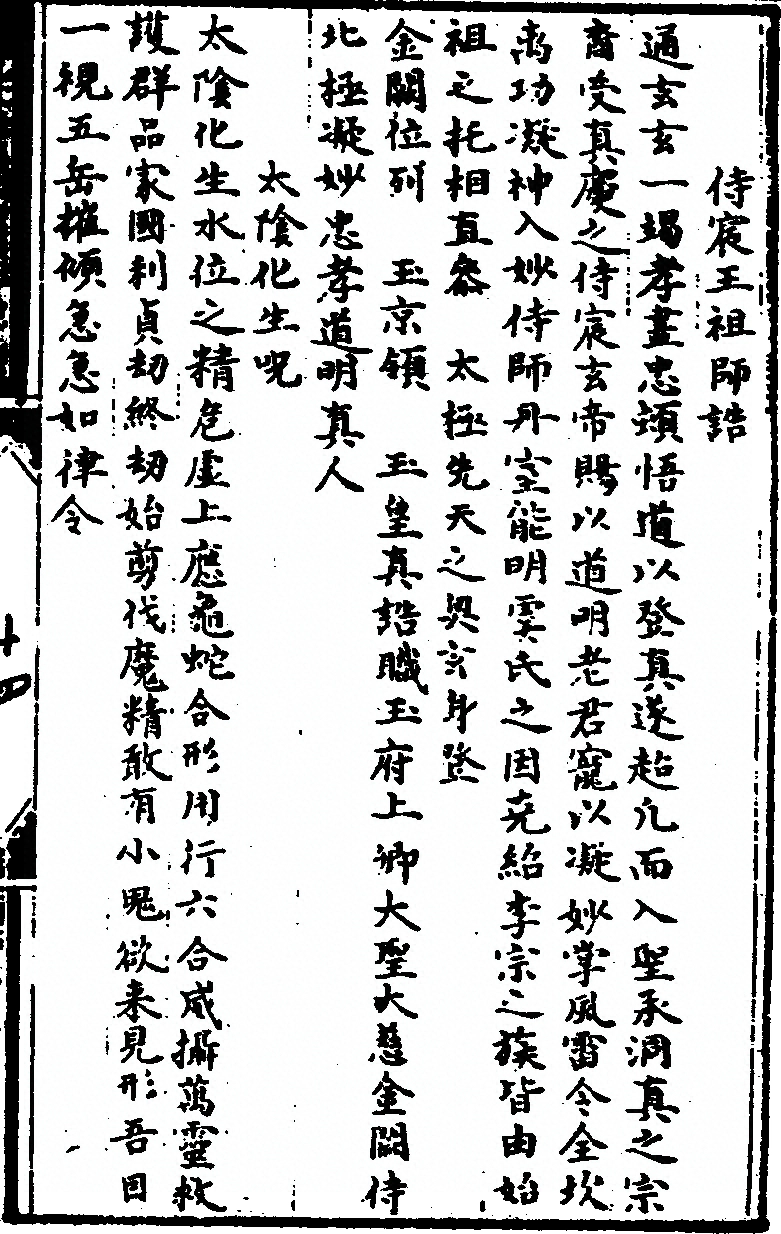 侍宸王祖師誥
通玄玄一竭孝盡忠頓悟道以登真遂超凢而入聖承洞真之宗
裔受真慶之侍宸玄帝賜以道明老君寵以凝妙掌風雷令全坎
离功凝神入妙侍師丹室能明雲氏之因堯紹李宗之蔟皆由始
祖之托相直叅　太極先天之奥玄身登
金闕位列　玉京領　玉皇真誥職玉府上卿大聖大慈金闕侍
北極凝妙忠孝道明真人
太隂化生呪
太隂化生水位之精危虚上應龜蛇合形用行六合威攝萬靈救
護群品家國利貞劫終劫始剪伐魔精敢有小鬼欲来見形吾目
一視五岳摧傾急急如律令
十四